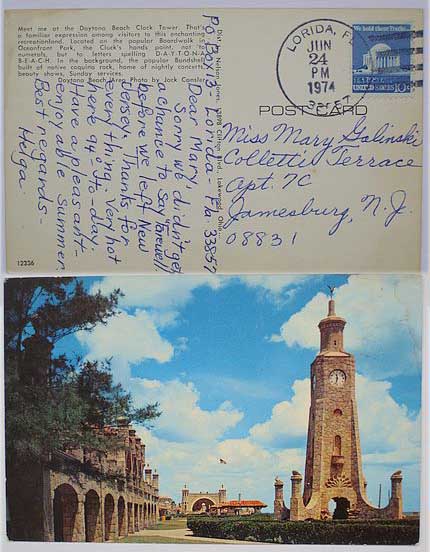 Meet me at the Daytona Beach Clock Tower. That's
a familiar expression among visitors to this enchanting
recreationland. Located on the popular Boardwalk in
Oceanfront Park, the Clock's hands point, not to
numerals, but to letters spelling D-A-Y-T-O-N-A
B-E-A-C-H. In the background, the popular Bandshell,
built of native coquina rock, home of nightly concerts,
beauty shows, Sunday services.
Daytona Beach Area Photo by Jack Gansler
12336
Dist. Nelson Jones, Clifton Blvd., Lakewood, Ohio
POST CARD
LORIDA, FL
JUN
24
PM
1974
33857
We hold these Truths...
UNITED STATES 10c
P.O. Box Lorida - Fla 33857
Dear Mary,
Sorry we didn't get
a chance to say farewell
before we left New
Jersey. Thanks for
everything. Very hot
here 94° to-day.
Have a pleasant -
enjoyable Summer.
Best regards -
Helga.
Miss Mary Galinski
Colletti Terrace
Apt. 7C
Jamesburg, N.J.
08831